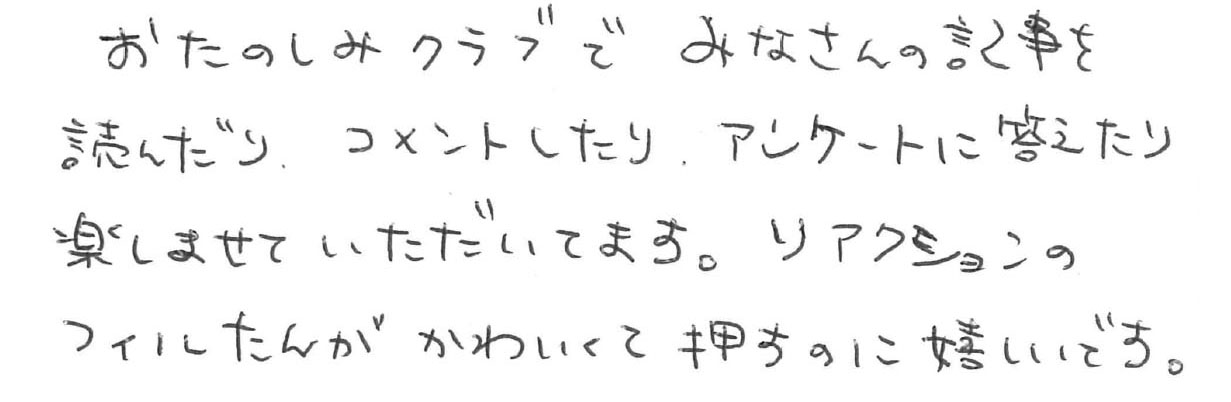 おたのしみクラブで みなさんの記事を
読んだり、コメントしたり、アンケートに答えたり
楽しませていただいてます。リアクションの
フィルたんが かわいくて 押すのに嬉しいです。